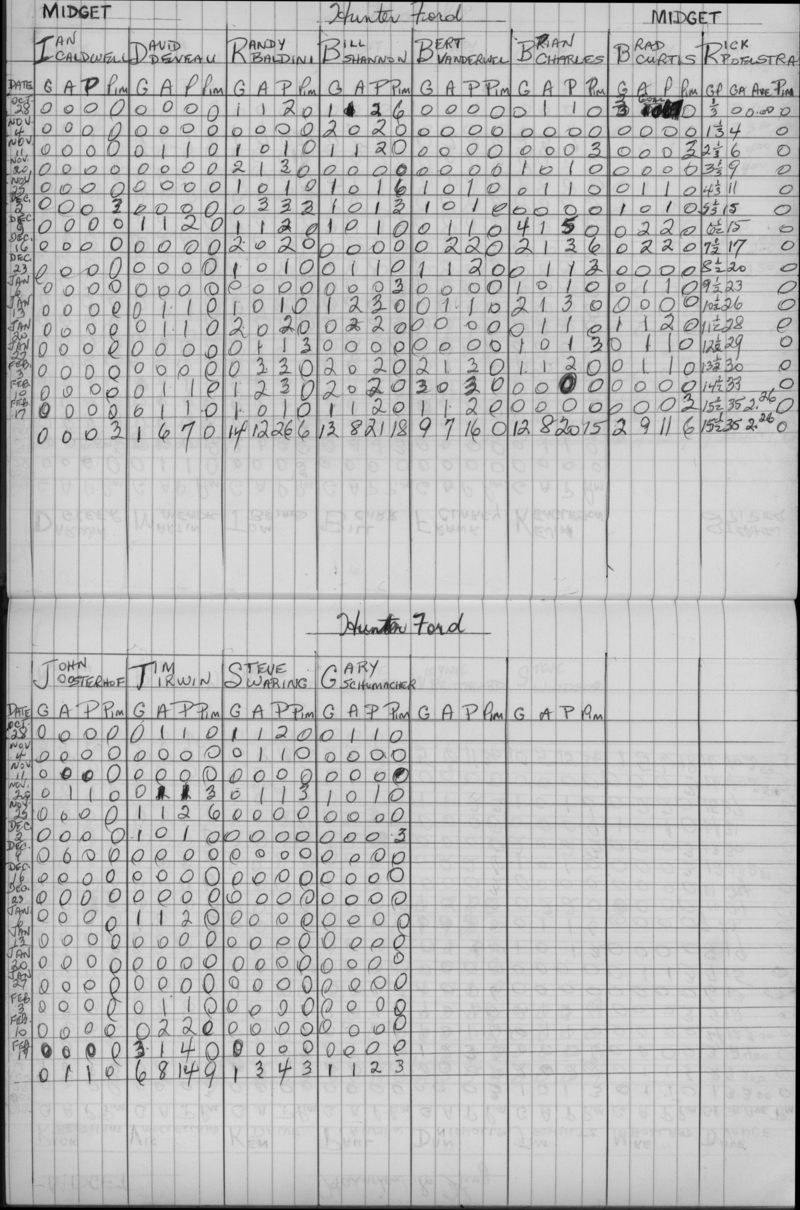 MIDGET Hunter Ford MIDGET
IAN CALDWELL DAVID DEVEAU RANDY BALDINI BILL SHANNON BERT VANDERWEL BRIAN CHARLES BRAD CURTIS RICK POELSTRA
DATE G A P Pim G A P Pim G A P Pim G A P Pim G A P Pim G A P Pim G A P Pim GP GA Ave Pim
OCT 28 0 0 0 0 0 0 0 0 1 1 2 0 1 1 2 6 0 0 0 0 0 1 1 0 0 1/3 0 0.00 0
NOV. 4 0 0 0 0 0 0 0 0 0 0 0 0 2 0 2 0 0 0 0 0 0 0 0 0 0 0 0 0 4 0
NOV 11 0 0 0 0 0 1 1 0 1 0 1 0 1 1 2 0 0 0 0 0 0 0 0 3 0 0 0 3 6 0
NOV. 20 0 0 0 0 0 0 0 0 2 1 3 0 0 0 0 0 0 0 0 0 1 0 1 0 0 0 0 0 9 0
NOV 25 0 0 0 0 0 0 0 0 1 0 1 0 1 0 1 6 1 0 1 0 0 1 1 0 0 1 1 0 11 0
DEC. 2 0 0 0 3 0 0 0 0 0 3 3 3 1 0 1 3 1 0 1 0 0 0 0 0 1 0 1 0 15 0
DEC 9 0 0 0 0 1 1 2 0 1 1 2 0 1 0 1 0 0 1 1 0 4 1 5 0 0 2 2 0 15 0
DEC. 16 0 0 0 0 0 0 0 0 2 0 2 0 0 0 0 0 0 2 2 0 2 1 3 6 0 2 2 0 7 1/2 17 0
DEC 23 0 0 0 0 0 0 0 0 1 0 1 0 0 1 1 0 1 1 2 0 0 1 1 3 0 0 0 0 8 1/2 20 0
JAN 6 0 0 0 0 0 0 0 0 0 0 0 0 0 0 0 3 0 0 0 0 1 0 1 0 0 1 1 0 9 1/2 23 0
JAN 13 0 0 0 0 0 1 1 0 1 0 1 0 1 2 3 0 0 1 1 0 2 1 3 0 0 0 0 0 10 1/2 26 0
JAN 20 0 0 0 0 0 1 1 0 2 0 2 0 0 2 2 0 0 0 0 0 0 1 1 0 1 1 2 0 11 1/2 28 0
JAN 27 0 0 0 0 0 0 0 0 0 1 1 3 0 0 0 0 0 0 0 0 1 0 1 3 0 1 1 0 12 1/2 29 0
FEB. 3 0 0 0 0 0 0 0 0 0 3 3 0 2 0 2 0 2 1 3 0 1 1 2 0 0 1 1 0 13 1/2 30 0
FEB. 10 0 0 0 0 0 1 1 0 1 2 3 0 2 0 2 0 3 0 3 0 0 0 0 0 0 0 0 0 14 1/2 33 0
FEB. 17 0 0 0 0 0 1 1 0 1 0 1 0 1 1 2 0 1 1 2 0 0 0 0 0 0 0 0 3 15 1/2 35 2.26 0
0 0 0 3 1 6 7 0 14 12 26 6 13 8 21 18 9 7 16 0 12 8 20 15 2 9 11 6 15 1/2 35 2.26 0
Hunter Ford
JOHN OOSTERHOF TIM IRWIN STEVE WARING GARY SCHUMACHER
DATE G A P Pim G A P Pim G A P Pim G A P Pim G A P Pim G A P Pim
OCT. 28 0 0 0 0 0 1 1 0 1 1 2 0 0 1 1 0
NOV 4 0 0 0 0 0 0 0 0 0 1 1 0 0 0 0 0
NOV 11 0 0 0 0 0 0 0 0 0 0 0 0 0 0 0 0
NOV. 20 0 1 1 0 0 1 1 3 0 1 1 3 1 0 1 0
NOV 25 0 0 0 0 1 1 2 6 0 0 0 0 0 0 0 0
DEC 2 0 0 0 0 1 0 1 0 0 0 0 0 0 0 0 3
DEC. 9 0 0 0 0 0 0 0 0 0 0 0 0 0 0 0 0
DEC. 16 0 0 0 0 0 0 0 0 0 0 0 0 0 0 0 0
DEC. 23 0 0 0 0 0 0 0 0 0 0 0 0 0 0 0 0
JAN 6 0 0 0 0 1 1 2 0 0 0 0 0 0 0 0 0
JAN 13 0 0 0 0 0 0 0 0 0 0 0 0 0 0 0 0
JAN 20 0 0 0 0 0 0 0 0 0 0 0 0 0 0 0 0
JAN 27 0 0 0 0 0 0 0 0 0 0 0 0 0 0 0 0
FEB. 3 0 0 0 0 0 1 1 0 0 0 0 0 0 0 0 0
FEB. 10 0 0 0 0 0 2 2 0 0 0 0 0 0 0 0 0
FEB 17 0 0 0 0 3 1 4 0 0 0 0 0 0 0 0 0
0 1 1 0 6 8 14 9 1 3 4 3 1 1 2 3